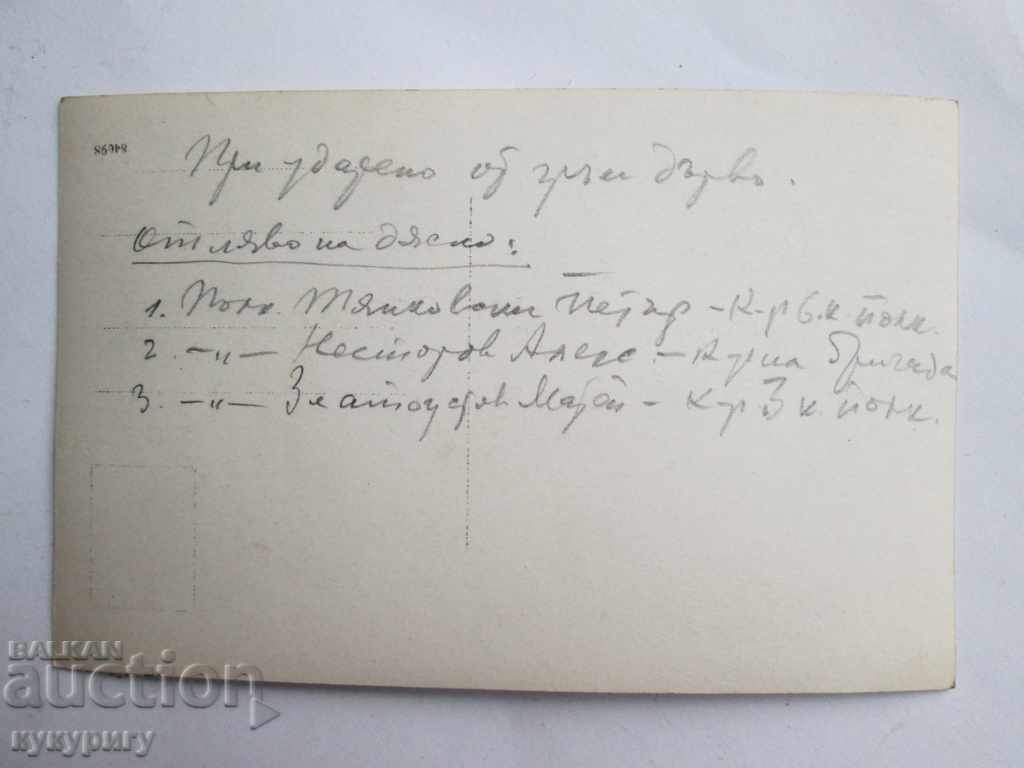 84698
При ударено от гръм дърво.
Отляво на дясно:
1. Полк. Тянковски Петър - К-р 6 к. полк.
2. -"- Несторов Алекс. - К-р на бригада
3. -"- Златоустов Матей - К-р 3 к. полк.
BALKAN
auction
кукуригу